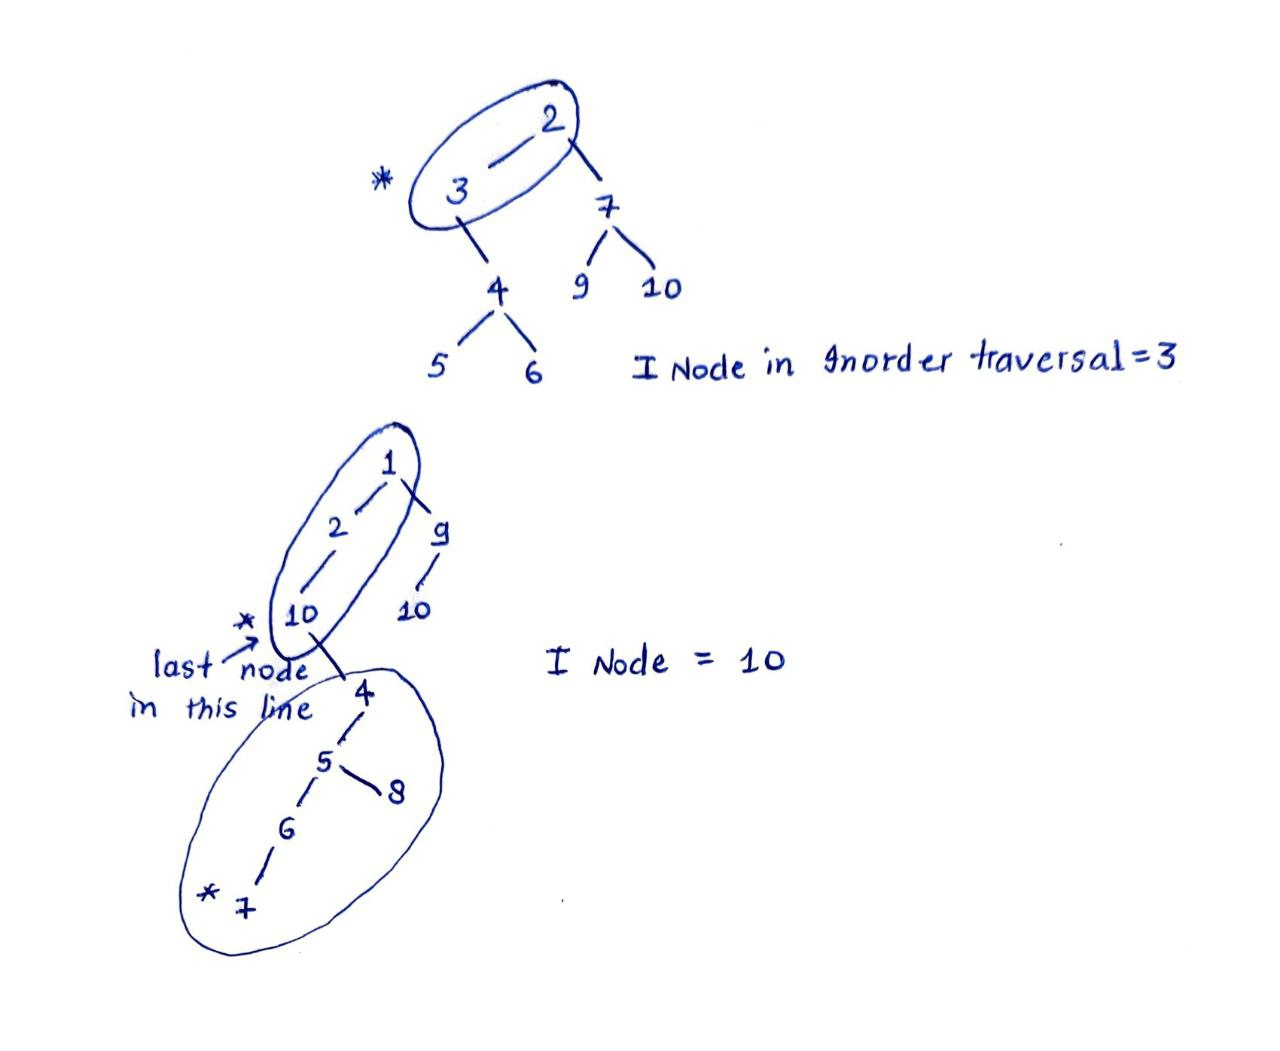 2
* 3
7
4 9 10
5 6
I Node in Inorder traversal = 3
1
2 9
* 10 10
last node
in this line
I Node = 10
4
5
8
6
* 7